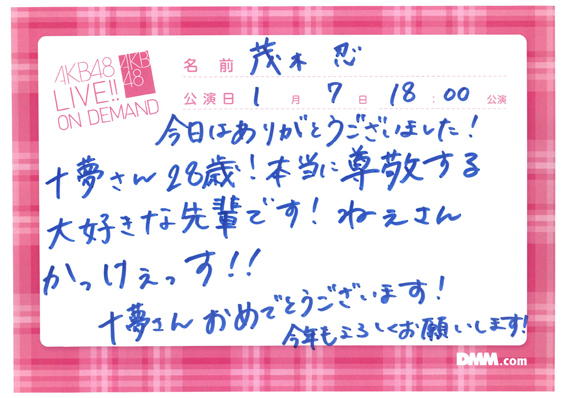 AKB48
LIVE!!
ON DEMAND
AKB
48
名前 茂木 忍
公演日 1月 7日 18:00公演
今日はありがとうございました!
十夢さん28歳!本当に尊敬する
大好きな先輩です!ねぇさん
かっけぇっす!!
十夢さんおめでとうございます!
今年もよろしくお願いします!
DMM.com